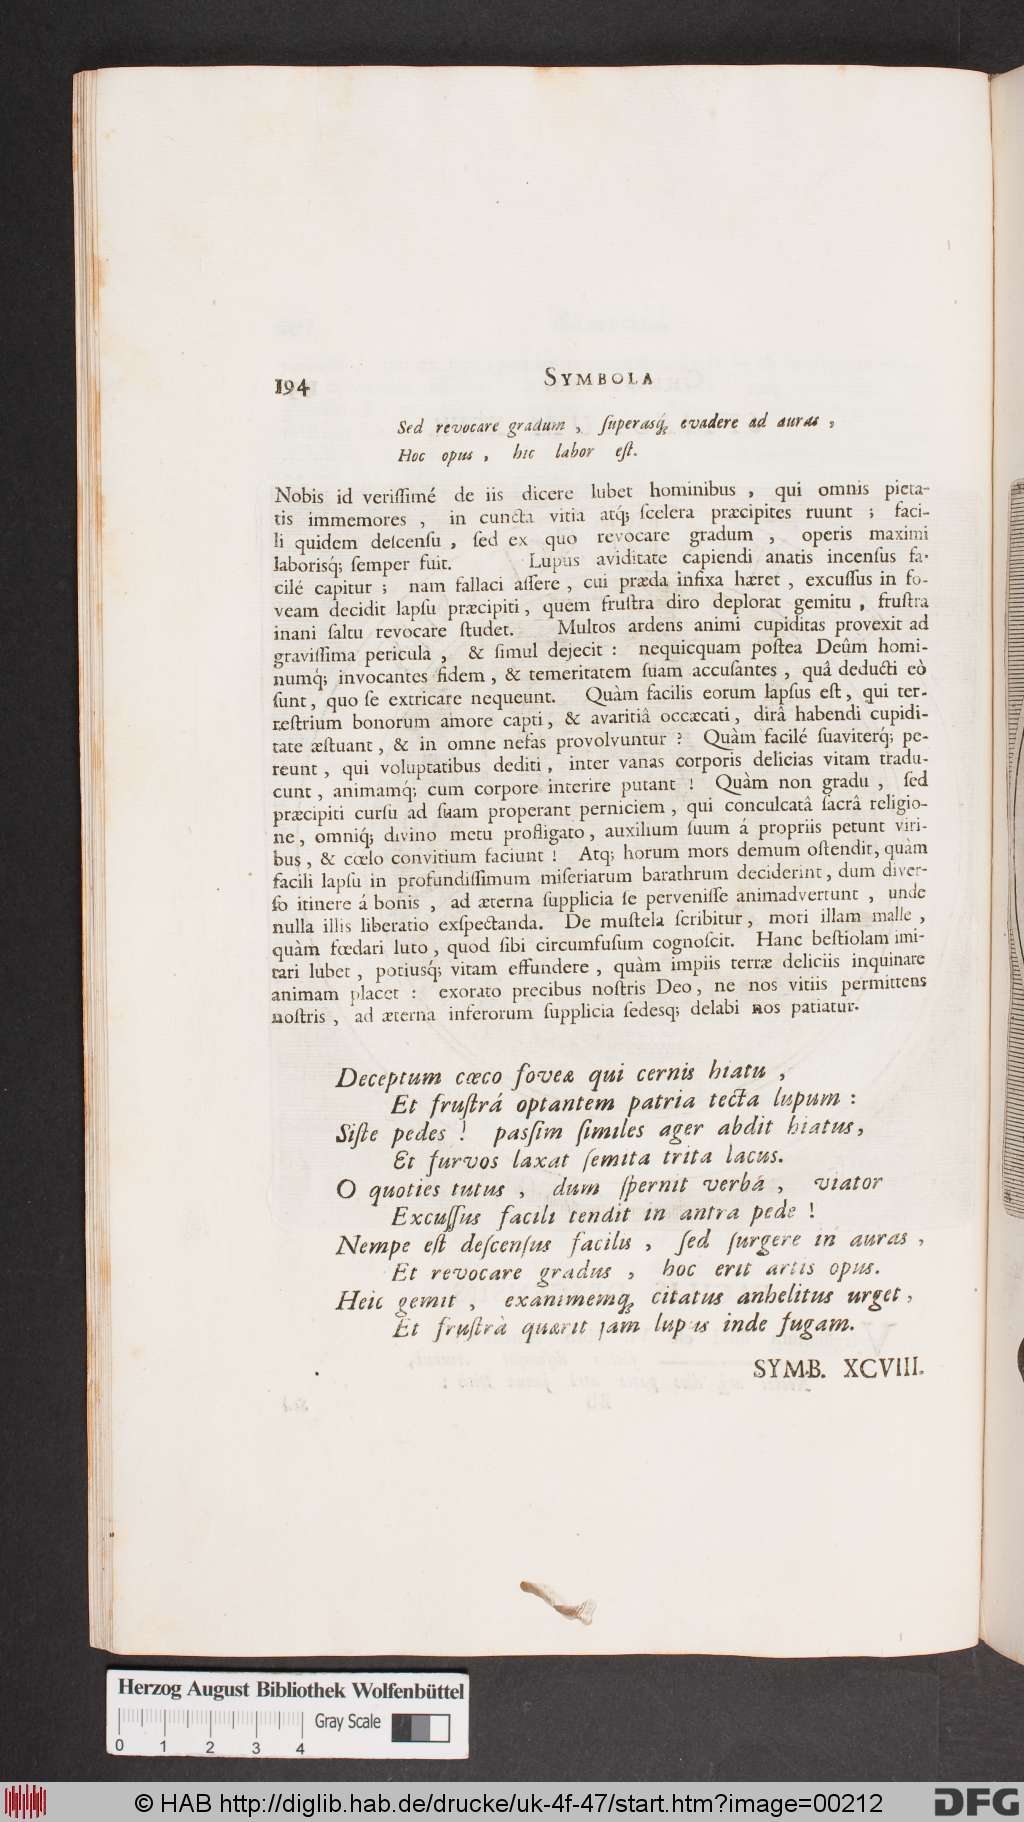 194
SYMBOLA
Sed revocare gradum , ſuperasq́; evadere ad auras ,
Hoc opus , hic labor eſt.
Nobis id veriſſimé de iis dicere lubet hominibus , qui omnis pieta-
tis immemores , in cuncta vitia atq́; ſcelera præcipites ruunt ; faci-
li quidem deſcenſu , ſed ex quo revocare gradum , operis maximi
laborisq́; ſemper fuit. Lupus aviditate capiendi anatis incenſus fa-
cilé capitur ; nam fallaci aſſere , cui præda infixa hæret , excuſſus in fo-
veam decidit lapſu præcipiti , quem fruſtra diro deplorat gemitu , fruſtra
inani ſaltu revocare ſtudet. Multos ardens animi cupiditas provexit ad
graviſſima pericula , & ſimul dejecit : nequicquam poſtea Deûm homi-
numq́; invocantes fidem , & temeritatem ſuam accuſantes , quâ deducti eò
ſunt , quo ſe extricare nequeunt. Quàm facilis eorum lapſus eſt , qui ter-
reſtrium bonorum amore capti , & avaritiâ occæcati , dirâ habendi cupidi-
tate æſtuant , & in omne nefas provolvuntur ? Quàm facilé ſuaviterq́; pe-
reunt , qui voluptatibus dediti , inter vanas corporis delicias vitam tradu-
cunt , animamq́; cum corpore interire putant ! Quàm non gradu , ſed
præcipiti curſu ad ſuam properant perniciem , qui conculcatâ ſacrâ religio-
ne , omniq́; divino metu profligato , auxilium ſuum á propriis petunt viri-
bus , & cœlo convitium faciunt ! Atq; horum mors demum oſtendit, quàm
facili lapſu in profundiſſimum miſeriarum barathrum deciderint , dum diver-
ſo itinere á bonis , ad æterna ſupplicia ſe perveniſſe animadvertunt , unde
nulla illis liberatio exſpectanda. De muſtela ſcribitur , mori illam malle ,
quàm fœdari luto , quod ſibi circumfuſum cognoſcit. Hanc beſtiolam imi-
tari lubet , potiusq́; vitam effundere , quàm impiis terræ deliciis inquinare
animam placet : exorato precibus noſtris Deo , ne nos vitiis permittens
noſtris , ad æterna inferorum ſupplicia ſedesq; delabi nos patiatur.
Deceptum cœco foveæ qui cernis hiatu ,
Et fruſtrá optantem patria tecta lupum :
Siſte pedes ! paſſim ſimiles ager abdit hiatus ,
Et furvos laxat ſemita trita lacus.
O quoties tutus , dum ſpernit verba , viator
Excuſſus facili tendit in antra pede !
Nempe eſt deſcenſus facilis , ſed ſurgere in auras ,
Et revocare gradus , hoc erit artis opus.
Heic gemit , exanimemq́; citatus anhelitus urget ,
Et fruſtrà quærit jam lupus inde fugam.
SYMB. XCVIII.
Herzog August Bibliothek Wolfenbüttel
Gray Scale
0 1 2 3 4
© HAB http://diglib.hab.de/drucke/uk-4f-47/start.htm?image=00212
DFG